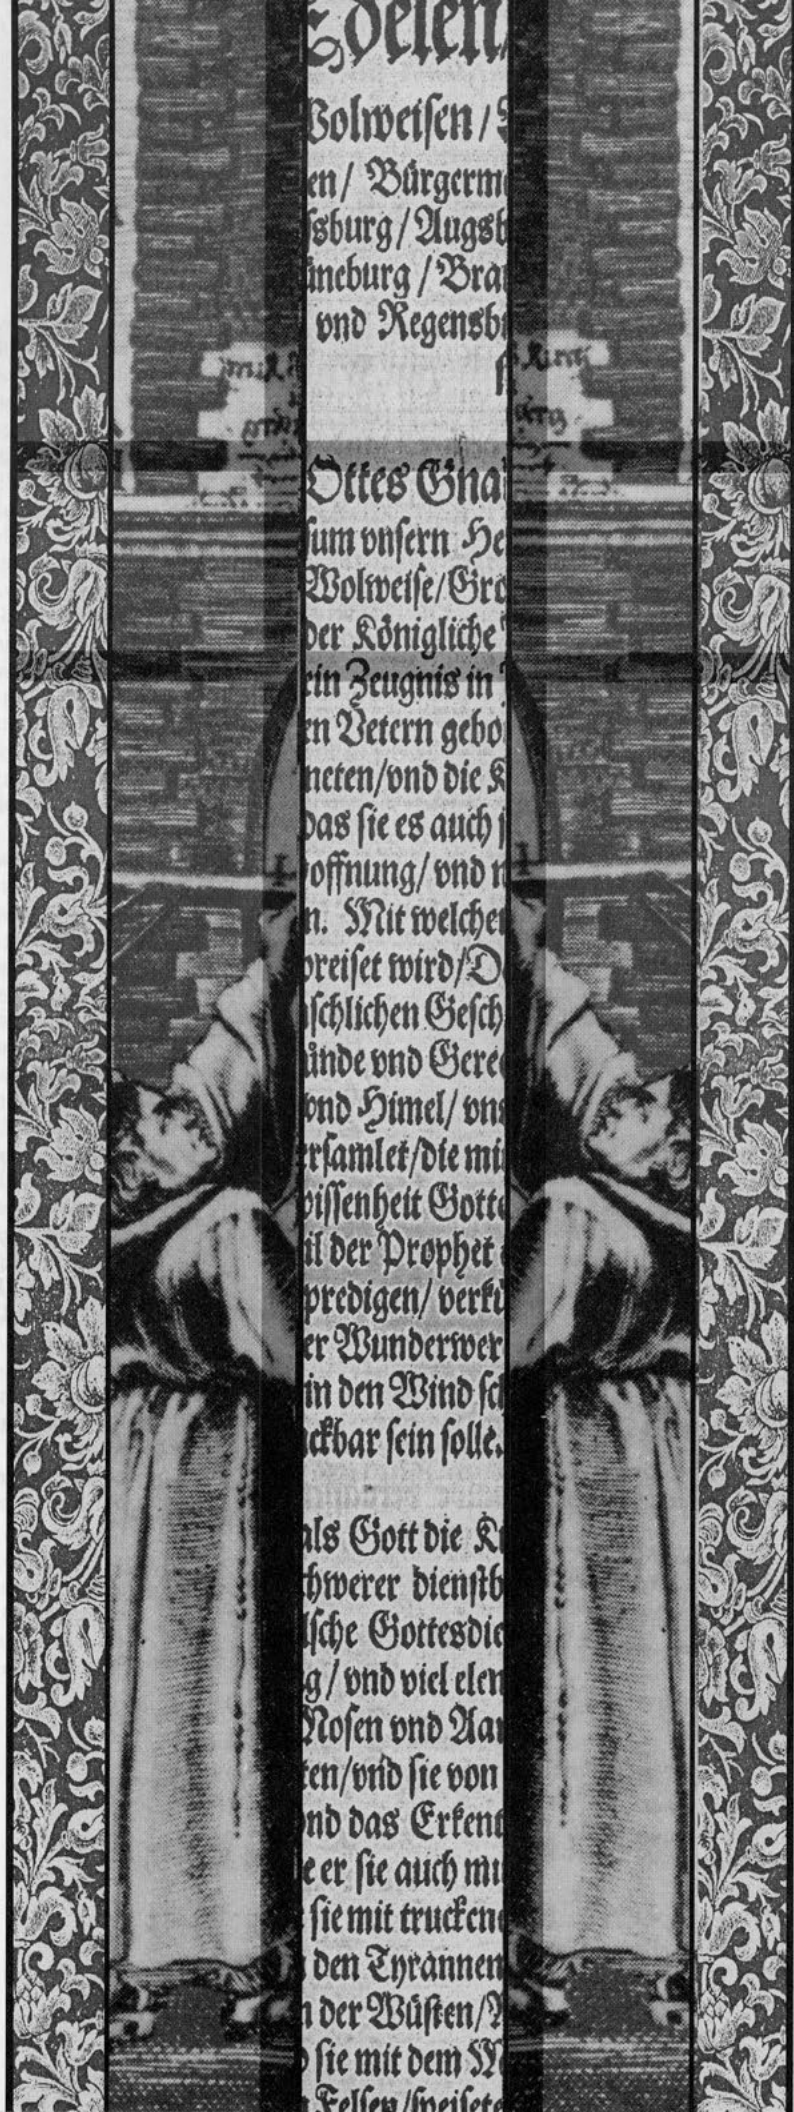 Edelen/
Wolweisen /
en/ Bürgerm
ssburg/Augsb
üneburg /Bra
vnd Regensb
Ottes Gna
sum vnsern He
Wolweise/Gro
der Königliche
ein Zeugnis in
en Vetern gebo
neten/vnd die K
das sie es auch
offnung/ vnd n
n. Mit welcher
preiset wird/D
schlichen Gesch
ünde vnd Gere
vnd Himel/ vns
ersamlet/die mi
wissenheit Gotte
il der Prophet
predigen/ verkü
er Wunderwer
in den Wind sch
ckbar sein solle.
als Gott die K
chwerer dienstb
lsche Gottesdie
g/ vnd viel elen
Mosen vnd Aar
ten/vnd sie von
vnd das Erkent
e er sie auch mi
sie mit truckene
den Tyrannen
n der Wüsten/
sie mit dem M
Felsen/speisete